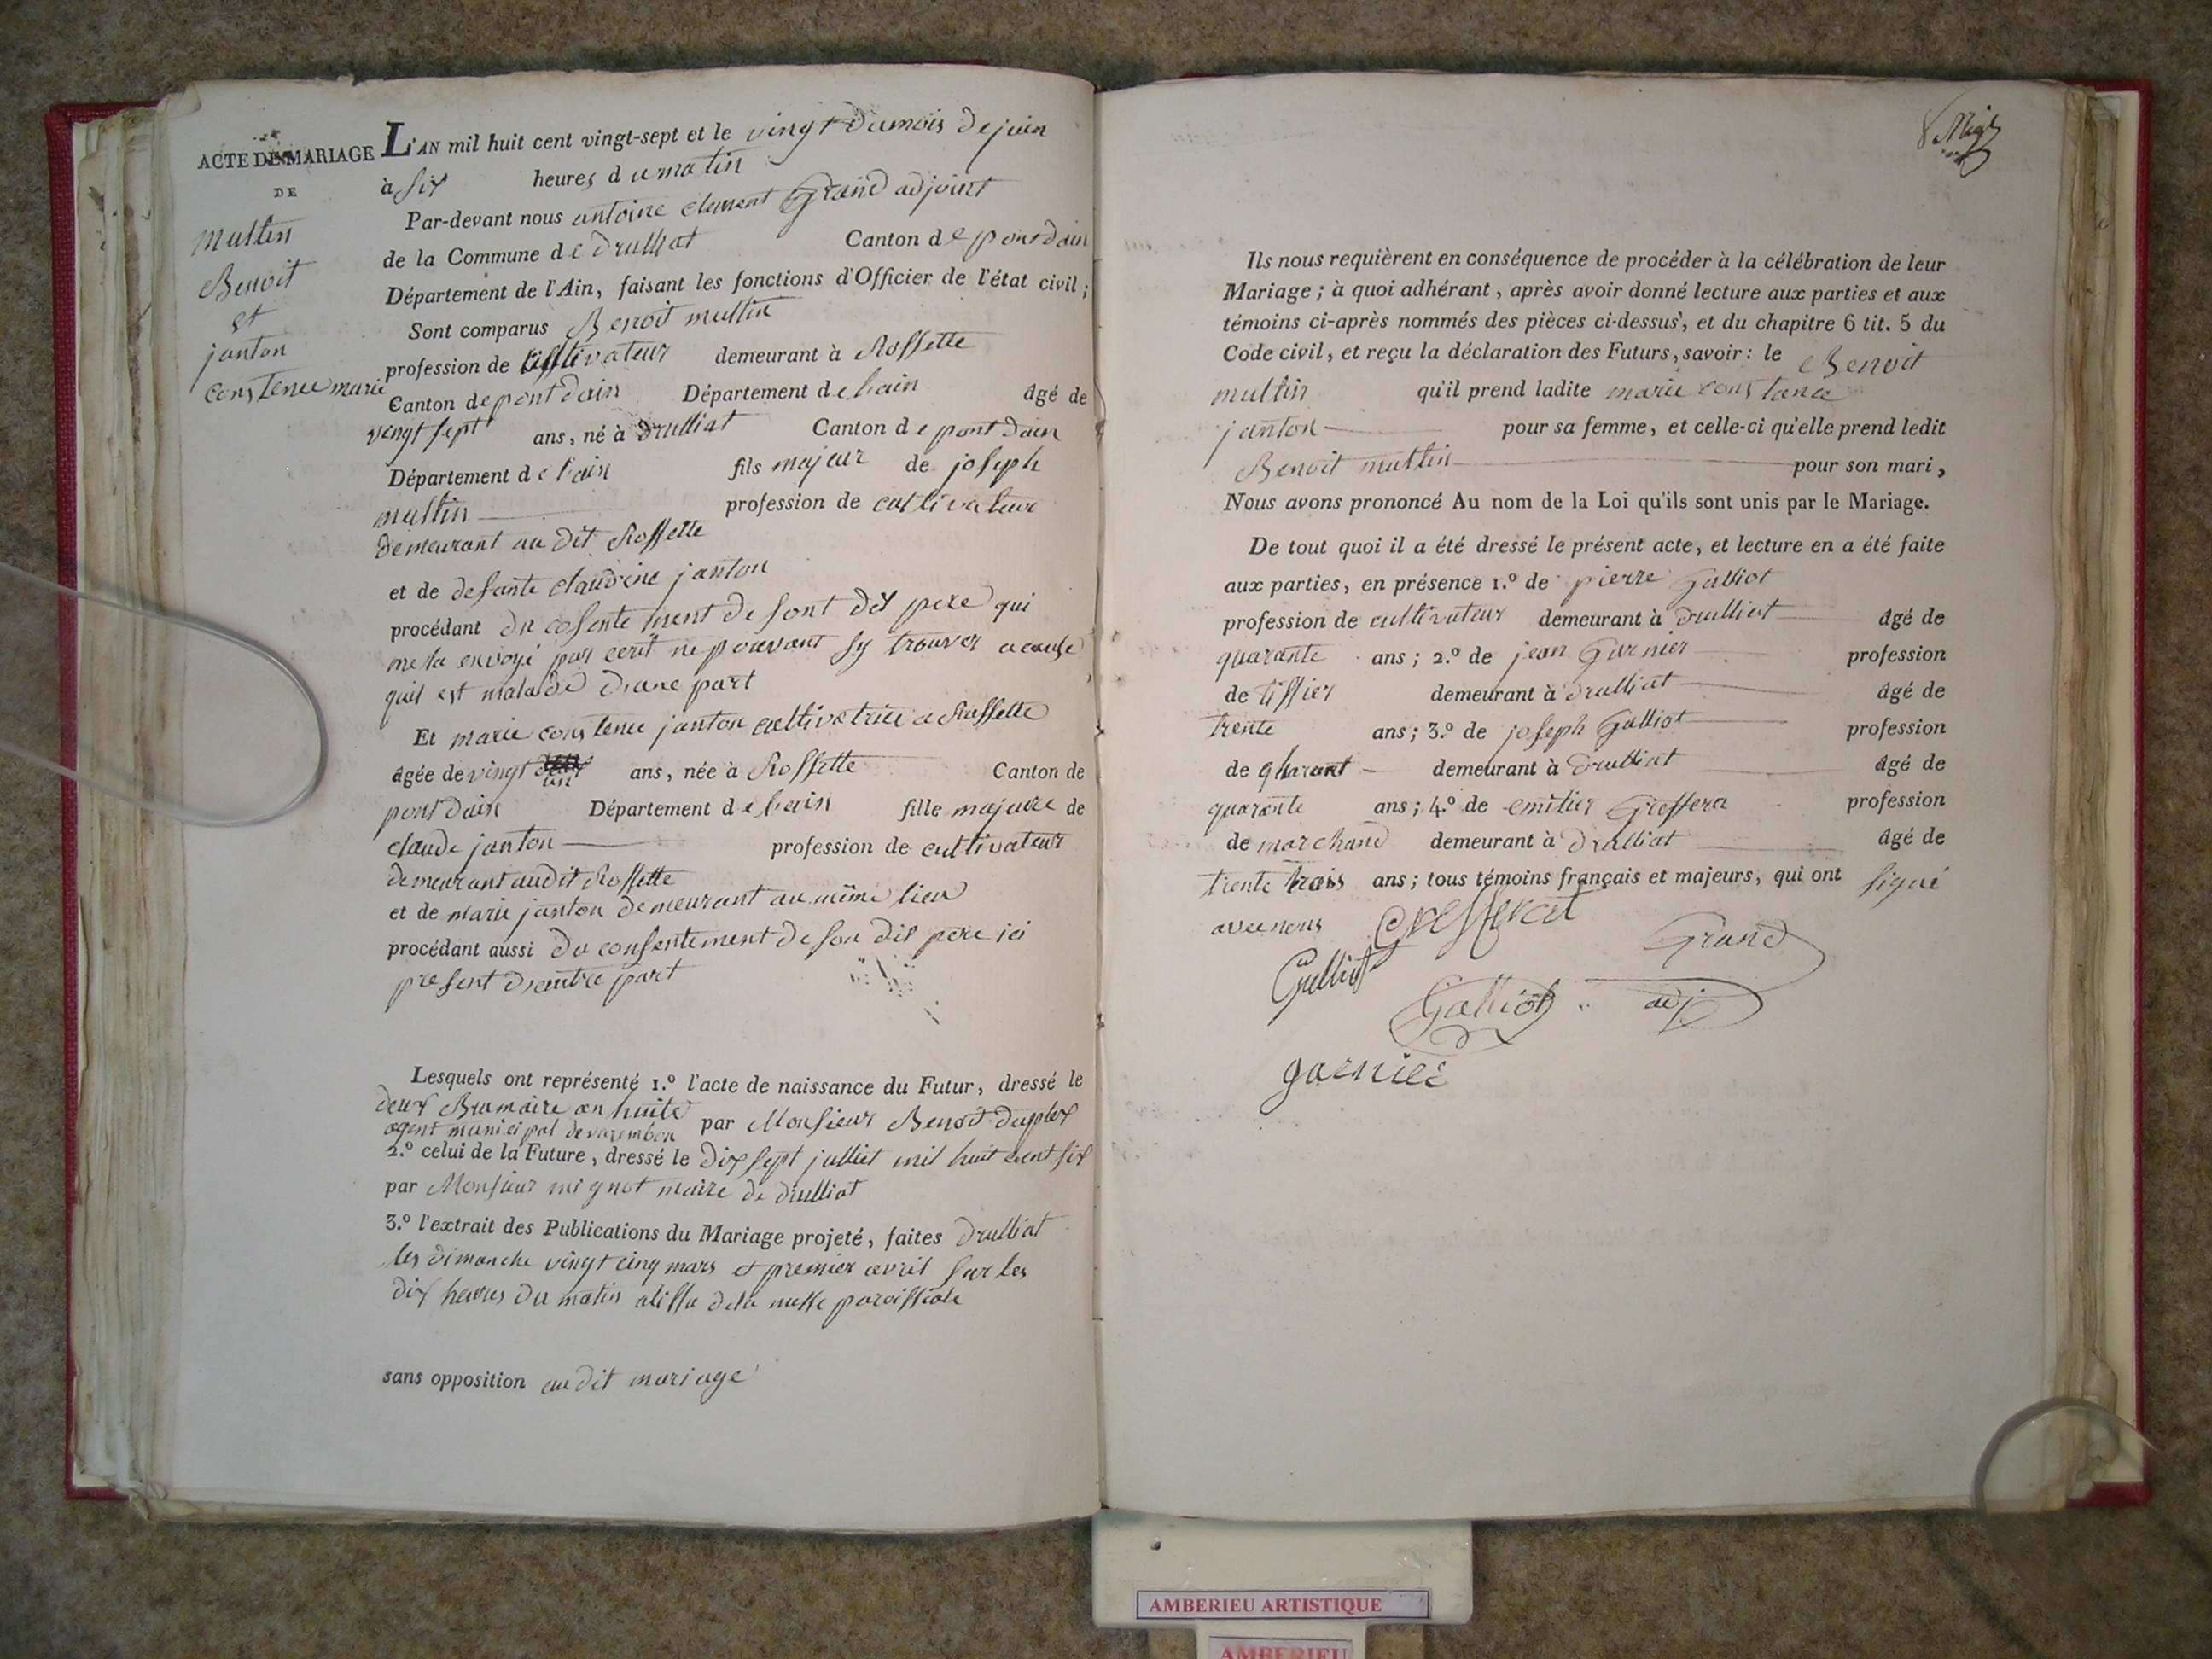 ACTE DE MARIAGE
DE
mullin
Benoit
et
janton
constence marie
L'AN mil huit cent vingt-sept et le vingt du mois de juin
à six heures du matin
Par-devant nous antoine clement Grand adjoint
de la Commune de druilliat Canton de pont dain
Département de l'Ain, faisant les fonctions d'Officier de l'état civil;
Sont comparus Benoit mullin
profession de cultivateur demeurant à Rossette
Canton de pont dain Département de lain âgé de
vingt sept ans, né à druilliat Canton de pont dain
Département de lain fils majeur de joseph
mullin profession de cultivateur
demeurant au dit Rossette
et de defante claudine janton
procédant du cosentement de sont dit pere qui
me la envoyé par ecrit ne pouvant sy trouver a cause
quil est malade d'une part
Et marie constence janton cultivatrice a Rossette
âgée de vingt un ans, née à Rossette Canton de
pont dain Département de lain fille majeure de
claude janton profession de cultivateur
demeurant audit Rossette
et de marie janton demeurant au même lieu
procédant aussi du consentement de son dit pere ici
present d'autre part
Lesquels ont représenté 1.º l'acte de naissance du Futur, dressé le
deux Brumaire an huite par Monsieur Benoit Duplex
agent municipal de varembon
2.º celui de la Future, dressé le dix sept julliet mil huit cent six
par Monsieur mignot maire de druilliat
3.º l'extrait des Publications du Mariage projeté, faites Druilliat
les dimanche vingt cinq mars et premier avril sur les
dix heures du matin a lissu de la messe paroissiale
sans opposition au dit mariage
Ils nous requièrent en conséquence de procéder à la célébration de leur
Mariage; à quoi adhérant, après avoir donné lecture aux parties et aux
témoins ci-après nommés des pièces ci-dessus, et du chapitre 6 tit. 5 du
Code civil, et reçu la déclaration des Futurs, savoir: le Benoit
mullin qu'il prend ladite marie constance
janton pour sa femme, et celle-ci qu'elle prend ledit
Benoit mullin pour son mari,
Nous avons prononcé Au nom de la Loi qu'ils sont unis par le Mariage.
De tout quoi il a été dressé le présent acte, et lecture en a été faite
aux parties, en présence 1.º de pierre Galliot
profession de cultivateur demeurant à druilliat âgé de
quarante ans; 2.º de jean Garnier profession
de tissier demeurant à druilliat âgé de
trente ans; 3.º de joseph Galliot profession
de demeurant à druilliat âgé de
quarante ans; 4.º de emilier profession
de marchand demeurant à druilliat âgé de
trente trois ans; tous témoins français et majeurs, qui ont signé
avec nous
Grand
Galliot
Galliot adj
garnier
AMBERIEU ARTISTIQUE
AMBERIEU